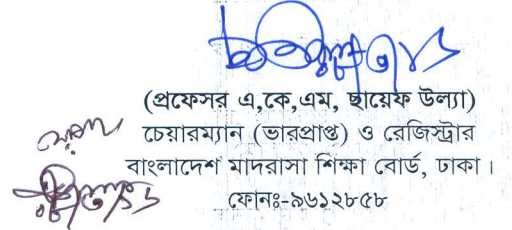 (প্রফেসর এ,কে,এম, ছায়েফ উল্যা)
চেয়ারম্যান (ভারপ্রাপ্ত) ও রেজিস্ট্রার
বাংলাদেশ মাদরাসা শিক্ষা বোর্ড, ঢাকা।
ফোনঃ-৯৬১২৮৫৮